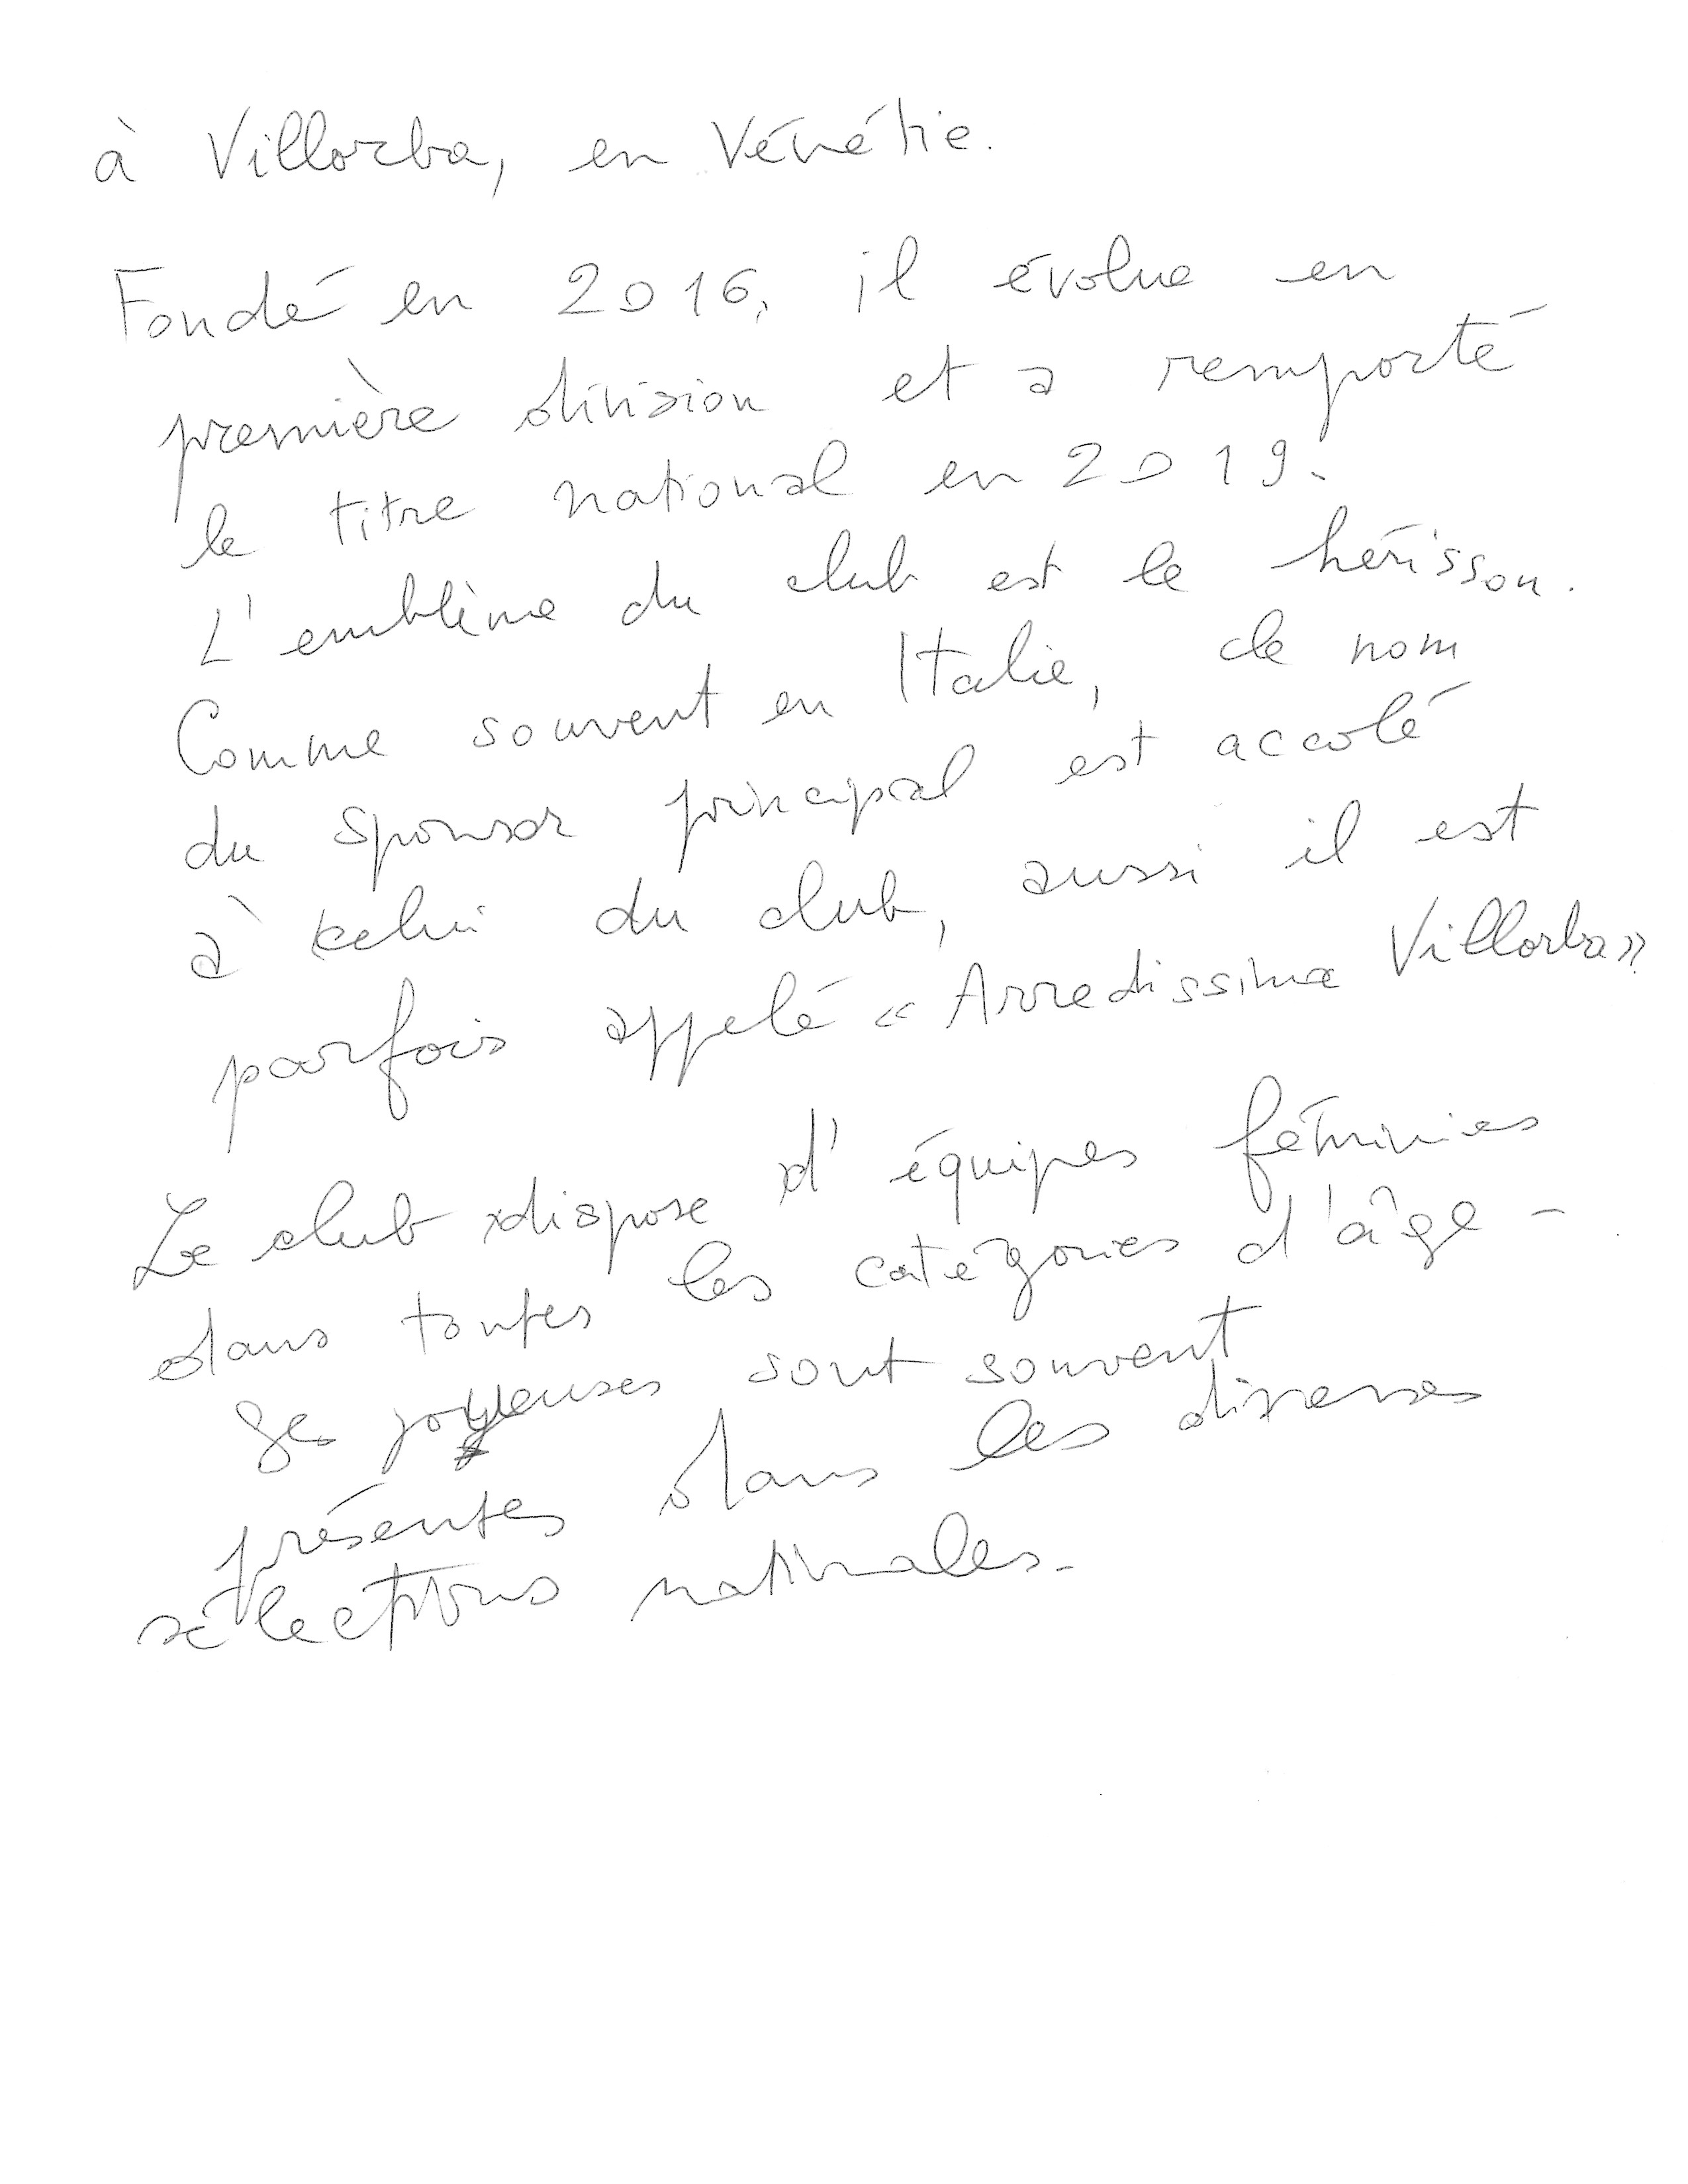 à Villorba, en Vénétie.
Fondé en 2016, il évolue en
première division et a remporté
le titre national en 2019.
L'emblème du club est le hérisson.
Comme souvent en Italie, de nom
du sponsor principal est accolé
à celui du club, aussi il est
parfois appelé « Arredissima Villorba »
Le club dispose d'équipes féminies
dans toutes les catégories d'âge -
Ses joyeuses sont souvent
présentes dans les diverses
sélections nationales.